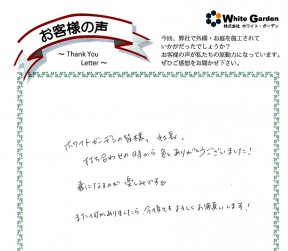 お客様の声
～ Thank You
Letter ～
White Garden
株式会社 ホワイト・ガーデン
今回、弊社で外構・お庭を施工されて
いかがだったでしょうか？
お客様の声が私たちの原動力になっています。
ぜひご感想をお聞かせ下さい。
ホワイトガーデンの皆様、社長、
打ち合わせの時から色々ありがとうございました！
春になるのが楽しみです
また何かありましたら、今後ともよろしくお願いします！